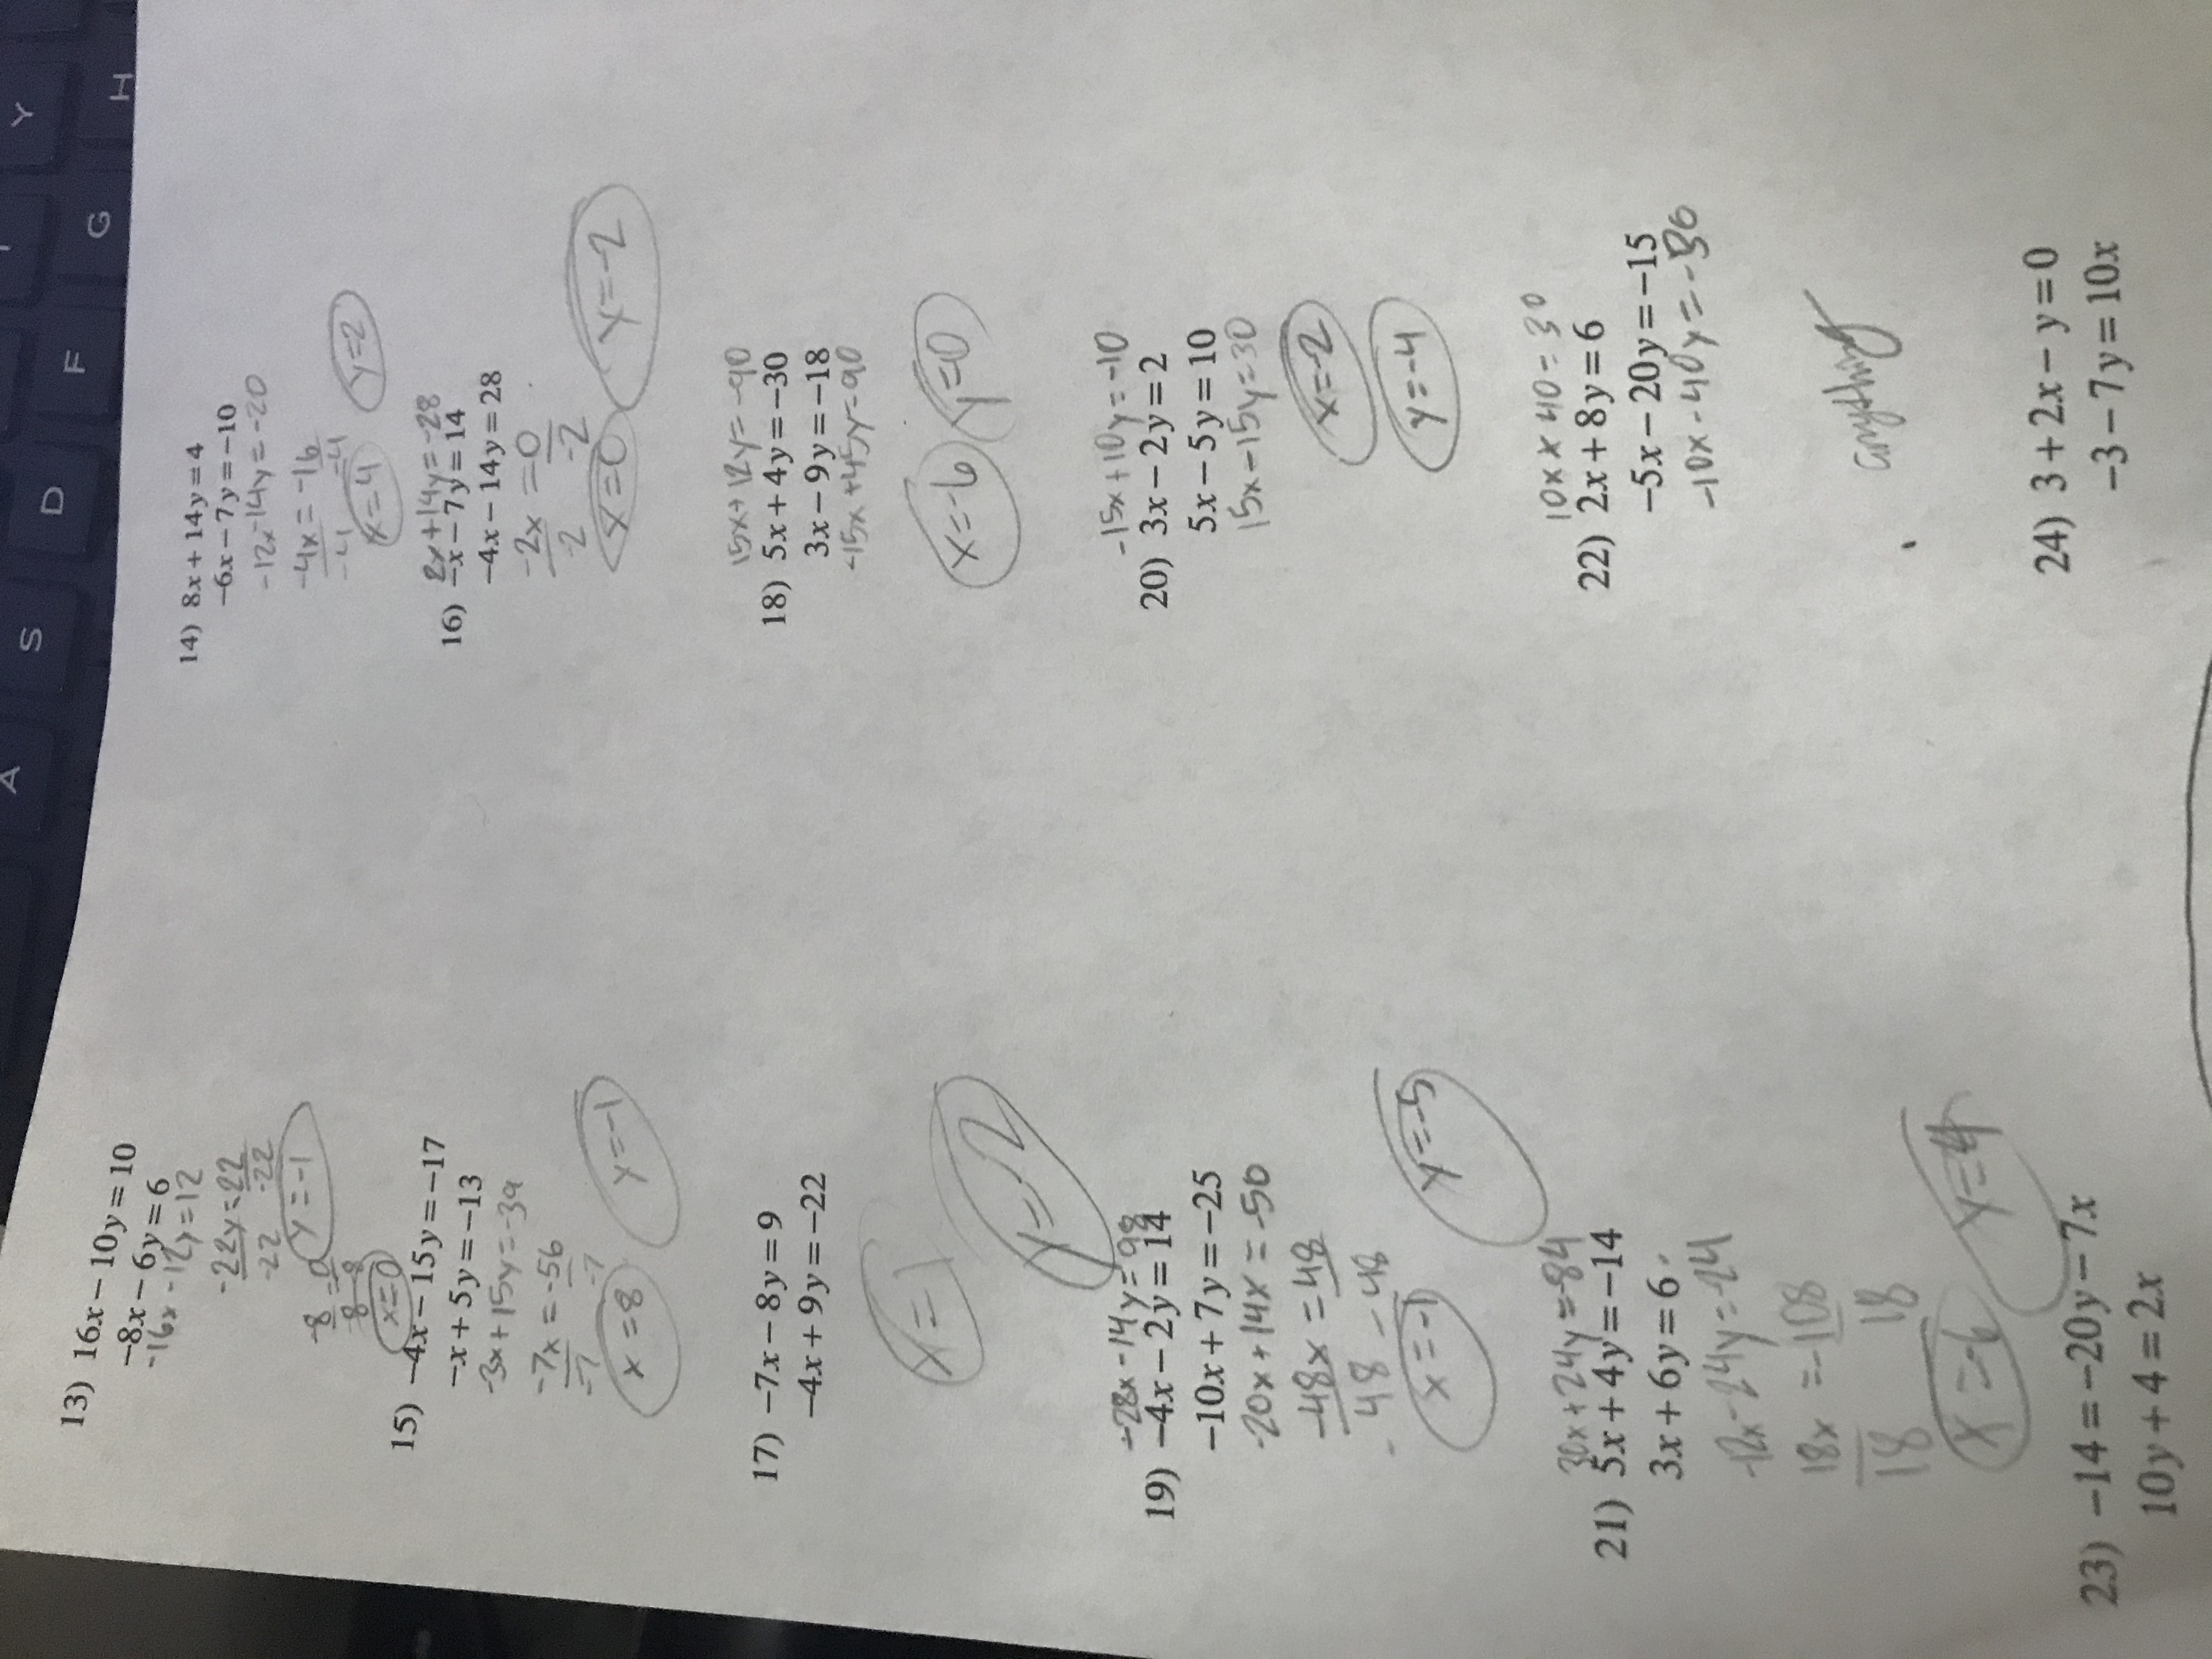 A S D F G H Y
13) 16x – 10y = 10
–8x – 6y = 6
-16x -12y=12
-22y=22
-22 -22
y=-1
-8 =0
-8 -8
x=0
14) 8x + 14y = 4
–6x – 7y = –10
-12x-14y=-20
-4x=-16
-4 -4
x=4 y=2
15) –4x – 15y = –17
–x + 5y = –13
-3x+15y=-39
-7x=-56
-7 -7
x=8 y=-1
2x+14y=-28
16) –x – 7y = 14
–4x – 14y = 28
-2x =0
-2 -2
x=0 y=-2
17) –7x – 8y = 9
–4x + 9y = –22
x=1
y=-2
15x+12y=-90
18) 5x + 4y = –30
3x – 9y = –18
-15x+45y=90
x=-6 y=0
-28x-14y=98
19) –4x – 2y = 14
–10x + 7y = –25
-20x+14x=-50
-48x=48
-48 -48
x=-1 y=-5
-15x+10y=-10
20) 3x – 2y = 2
5x – 5y = 10
15x-15y=30
x=-2
y=-4
30x+24y=-84
21) 5x + 4y = –14
3x + 6y = 6
-12x-24y=-24
18x =-108
18 18
x=-6 y=4
10x x 40=30
22) 2x + 8y = 6
–5x – 20y = –15
-10x-40y=-30
anything
23) –14 = –20y – 7x
10y + 4 = 2x
24) 3 + 2x – y = 0
–3 – 7y = 10x